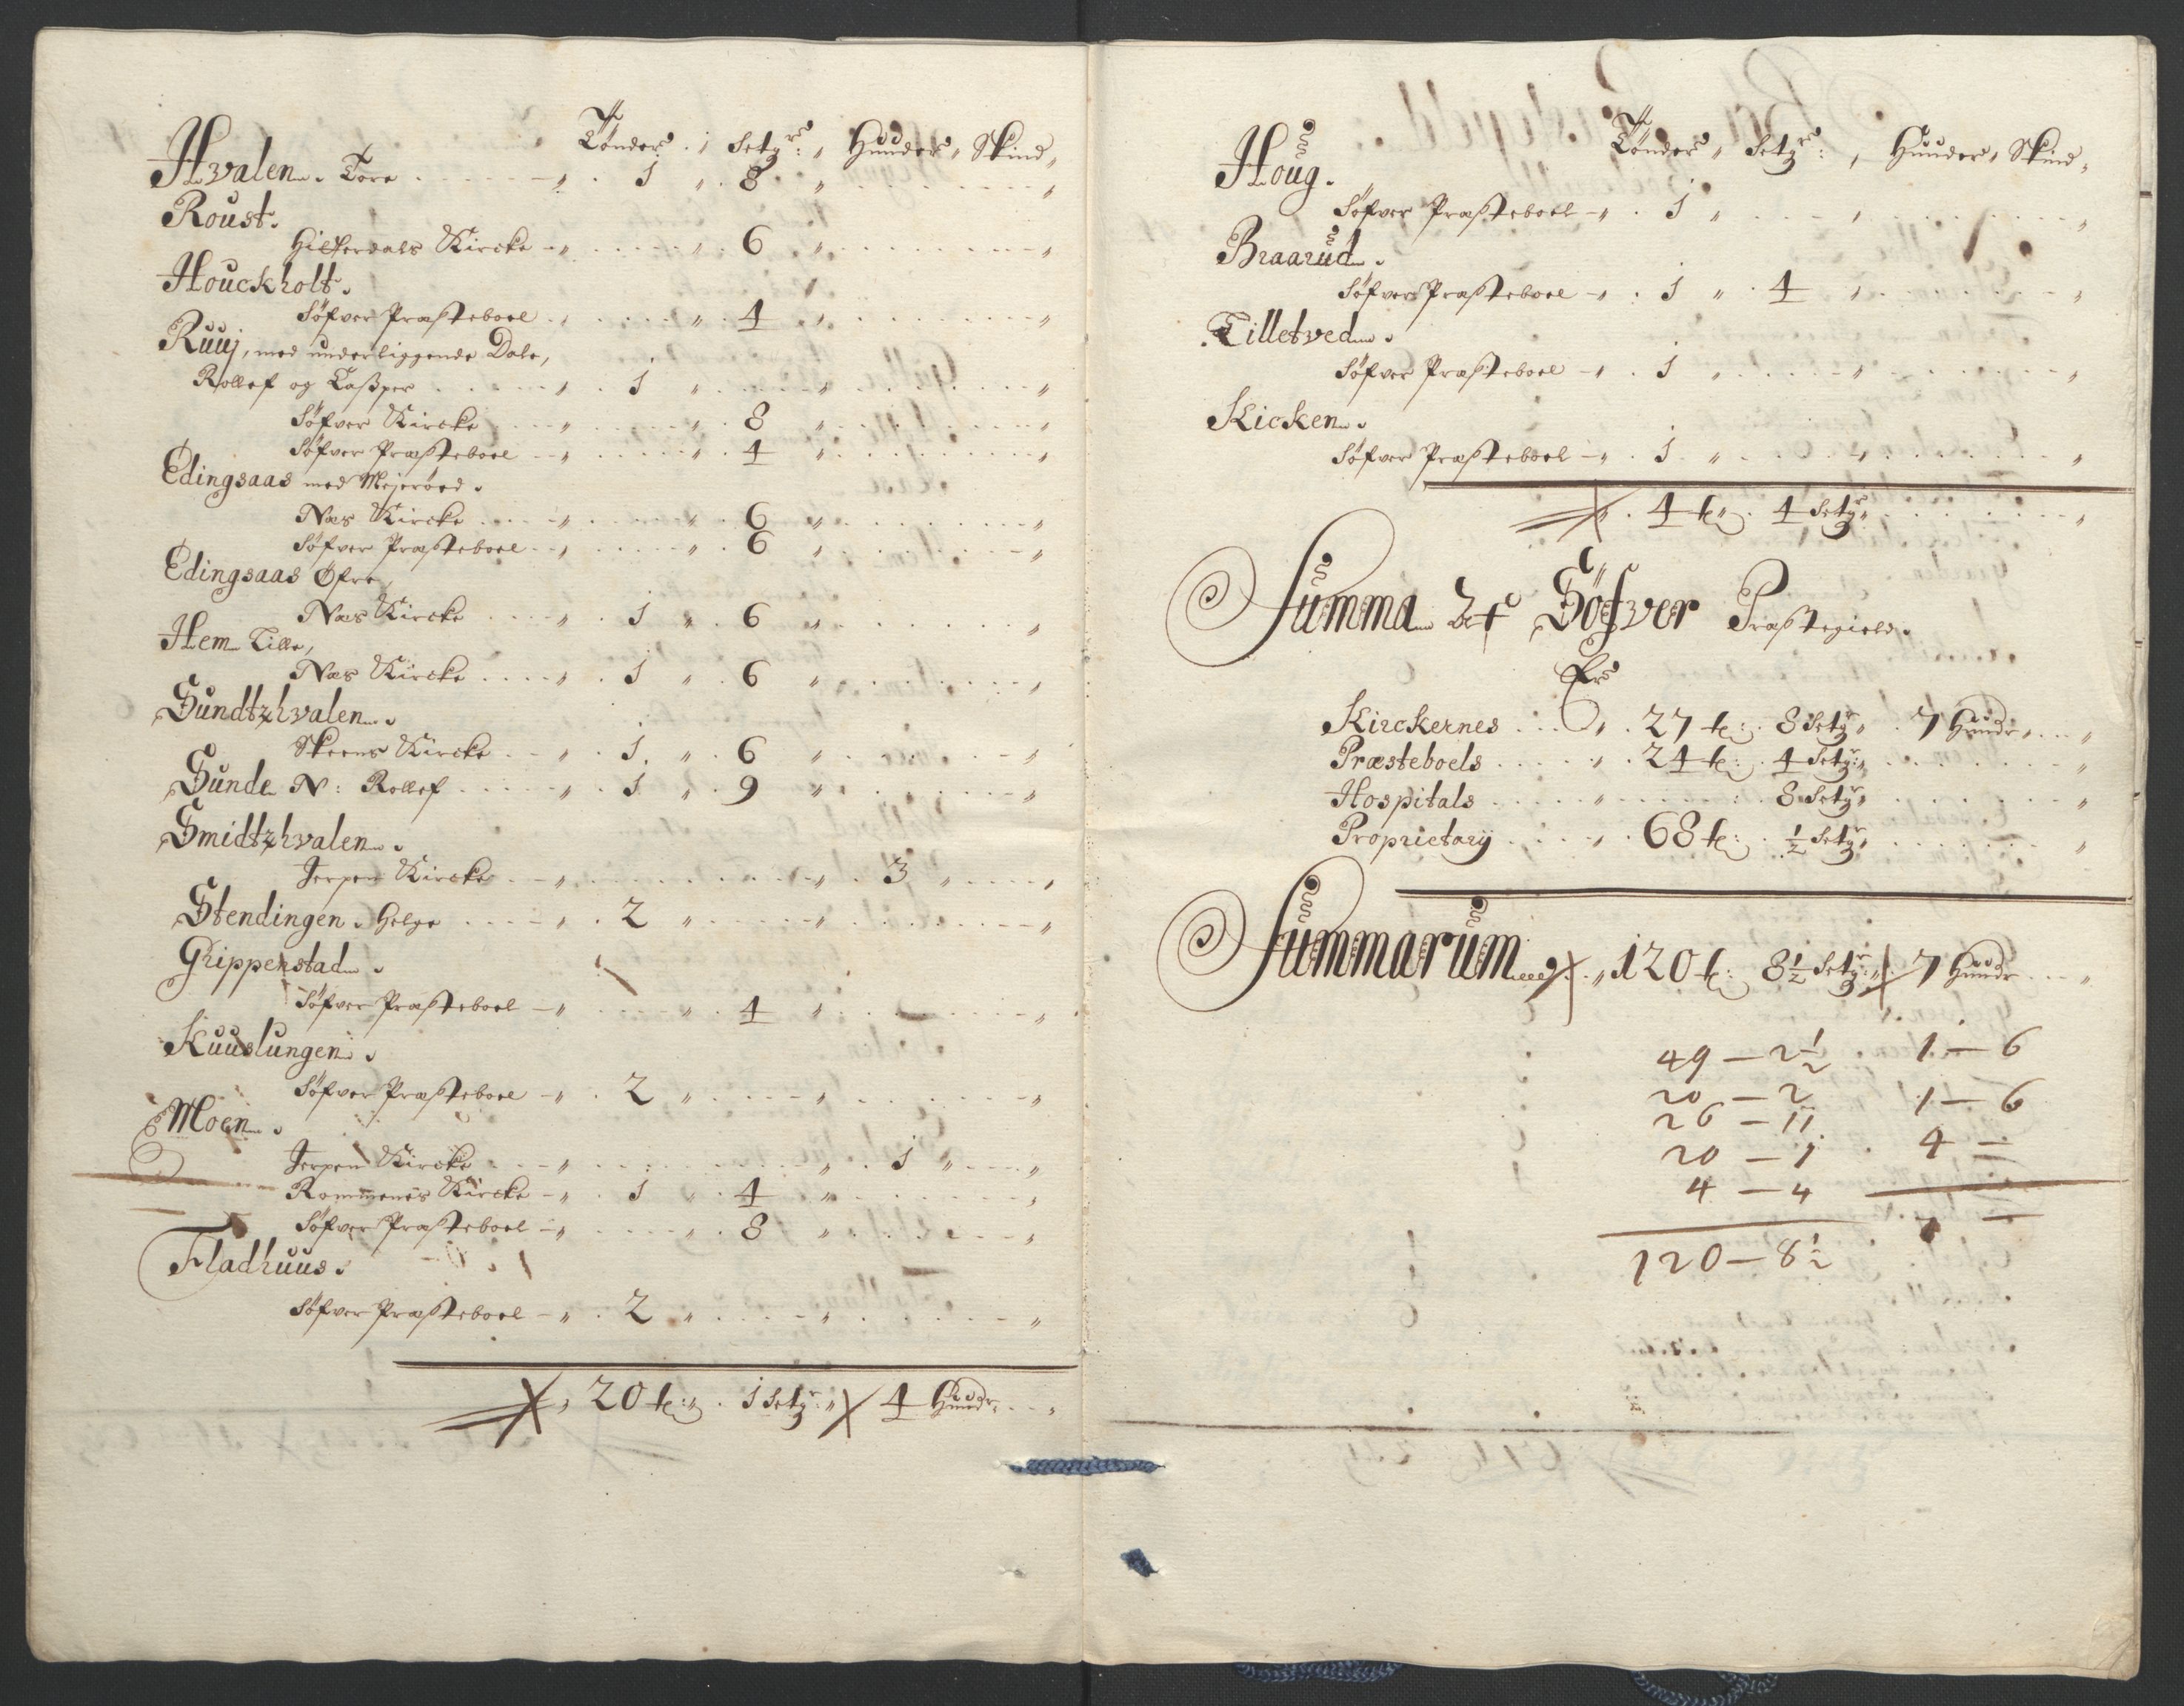 Tønder. Setg:r Huuder, Skind,
Hvalen. Tore 1 8
Roust.
Hitterdals Kircke 6
Houckholt.
Söfver Præsteboel 4
Ruuj, med underliggende Dale,
Rollef og Casper 1
Söfver Kircke 8
Söfver Præsteboel 4
Edingsaas med Mejeröed.
Næs Kircke 6
Söfver Præsteboel 6
Edingsaas Öfre,
Næs Kircke 1 6
Hem Lille,
Næs Kircke 1 6
Sundtzhvalen.
Skeens Kircke 1 6
Sunde N: Rollef 1 9
Smidtzhvalen.
Jerpen Kircke 3
Stendingen. Helge 2
Grippenstad.
Söfver Præsteboel 4
Kuuslungen.
Söfver Præsteboel 2
Moen.
Jerpen Kircke 1
Rommenes Kircke 1 4
Söfver Præsteboel 8
Fladhuus.
Söfver Præsteboel 2
20 t: 1 Setg:r 4 Huudr.
Tønder, Setg:r, Huuder, Skind,
Houg.
Söfver Præsteboel 1
Braarud.
Söfver Præsteboel 1 4
Tilletved.
Söfver Præsteboel 1
Kicken.
Söfver Præsteboel 1
4 t: 4 Setg:r
Summa Söfver Præstegield.
Er
Kirckernes 27 t: 8 Setg:r 7 Huudr.
Præsteboels 24 t: 4 Setg:r
Hospitals 8 Setg:r
Proprietarij 68 t: ½ Setg:r
Summarum 120 t: 8½ Setg:r 7 Huudr
49 — 2½ 1 — 6
20 — 2 1 — 6
26 — 11
20 — 1 4 —
4 — 4
120 — 8½